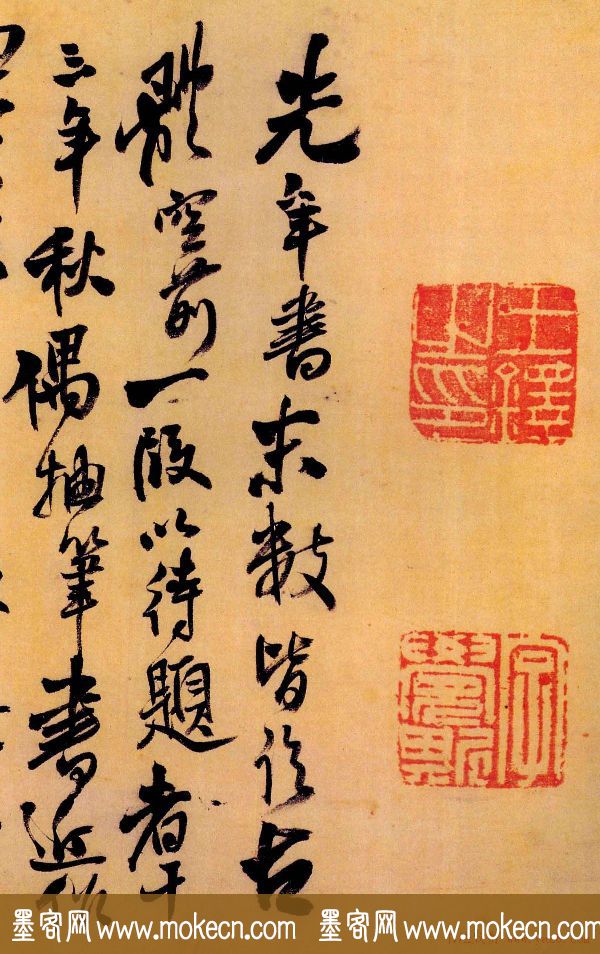 王鐸之印
字覺斯
先年書數皆古
體空前一段以待題者十
三年秋偶抽筆書近作
墨客网 www.mokecn.com 墨客网 www.mokecn.com